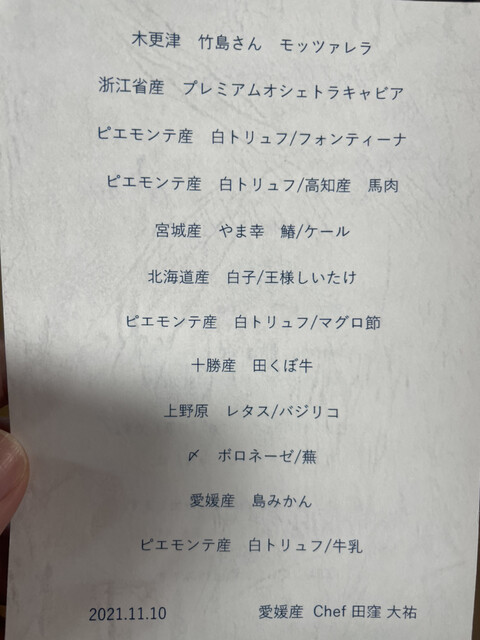 木更津　竹島さん　モッツァレラ
浙江省産　プレミアムオシェトラキャビア
ピエモンテ産　白トリュフ/フォンティーナ
ピエモンテ産　白トリュフ/高知産　馬肉
宮城産　やま幸　鰆/ケール
北海道産　白子/王様しいたけ
ピエモンテ産　白トリュフ/マグロ節
十勝産　田くぼ牛
上野原　レタス/バジリコ
〆　ボロネーゼ/蕪
愛媛産　島みかん
ピエモンテ産　白トリュフ/牛乳
2021.11.10　愛媛産 Chef 田窪 大祐